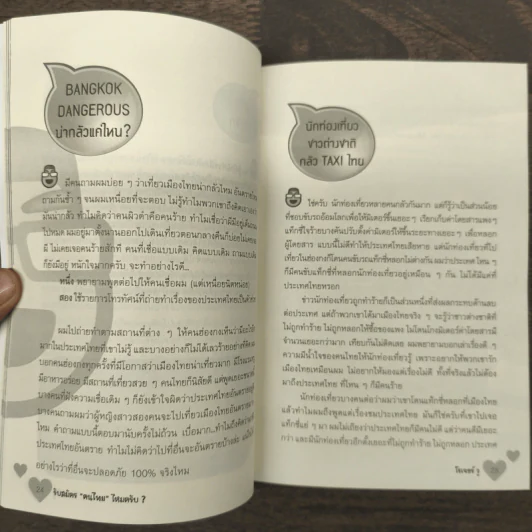 BANGKOK
DANGEROUS
น่ากลัวแค่ไหน?
มีคนถามผมบ่อย ๆ ว่าเที่ยวเมืองไทยน่ากลัวไหม อันตราย
ถามกันซ้ำ ๆ จนเหนื่อยที่จะตอบ ไม่รู้ทำไมพวกเขาถึงคิด
นั้นน่ากลัว ทำไมคิดว่าคนผิวดำคือคนร้าย ทำไมเชื่อว่า
มี ไม่เคยเจอคนร้ายสักที คนที่เชื่อแบบเดิม คิดแบบเดิม ถามแบบเดิม
ก็ยังมีอยู่ หนักใจมากครับ จะทำอย่างไรดี...
หนึ่ง พยายามพูดต่อไปให้คนเชื่อผม (แต่เหนื่อยนิดหน่อย)
สอง ใช้รายการโทรทัศน์ที่ถ่ายทำเรื่องของประเทศไทยเป็น
ผมไปถ่ายทำตามสถานที่ต่าง ๆ ให้คนฮ่องกงเห็นว่ามีอะไร
มากในประเทศไทยที่เขาไม่รู้ และบางอย่างก็ไม่ได้เลวร้ายอย่างที่
บอกคนฮ่องกงทุกครั้งที่มีโอกาสว่าเมืองไทยน่าเที่ยวมาก มี
มีอาหารอร่อย มีสถานที่เที่ยวสวย ๆ คนไทยก็นิสัยดี แต่พูดเยอะ
บางคนที่ฝังความเชื่อเดิม ๆ ก็ยังเข้าใจผิดว่าประเทศไทยอันตราย
บางคนถามผมว่าผู้หญิงสาวสองคนจะไปเที่ยวเมืองไทยอันตราย
ไหม คำถามแบบนี้ตอบมานับครั้งไม่ถ้วน เบื่อมาก..ทำไมถึงคิดว่า
ประเทศไทยอันตราย ทำไมไม่คิดว่าไปที่อื่นจะอันตรายบ้างล่ะ
อย่างไรว่าที่อื่นจะปลอดภัย 100% จริงไหม
24 รับสมัคร "คนไทย" ไหมครับ ?
นักท่องเที่ยว
ชาวต่างชาติ
กลัว TAXI ไทย
ใช่ครับ นักท่องเที่ยวหลายคนกลัวกันมาก แต่ก็รู้ว่าเป็นส่วนน้อย
ที่ชอบขับรถอ้อมโลกเพื่อให้มิเตอร์ขึ้นเยอะ ๆ เรียกเก็บค่าโดยสารแพงๆ
แท็กซี่ร้ายบางคนปรับตั้งค่ามิเตอร์ให้ขึ้นระยะทางเยอะๆ เพื่อหลอก
ผู้โดยสาร แบบนี้ไม่ดีทำให้ประเทศไทยเสียหาย แต่นักท่องเที่ยวที่ไป
เที่ยวในฮ่องกงก็โดนคนขับรถแท็กซี่หลอกไม่ต่างกัน ผมว่าประเทศไหน ๆ
ก็มีคนขับแท็กซี่ที่หลอกนักท่องเที่ยวอยู่เหมือนๆ กัน ไม่ได้มีแค่ที่
ประเทศไทยหรอก
ข่าวนักท่องเที่ยวถูกทำร้ายก็เป็นส่วนหนึ่งที่ส่งผลกระทบด้านลบ
ต่อประเทศ แต่ถ้าพวกเขาได้มาเมืองไทยจริง ๆ จะรู้ว่าชาวต่างชาติที่
ไม่ถูกทำร้าย ไม่ถูกหลอกให้ซื้อของแพง ไม่โดนโกงมิเตอร์ค่าโดยสารมี
จำนวนเยอะกว่ามาก เทียบกันไม่ติดเลย ผมพยายามบอกเล่าเรื่องดี ๆ
ความมีน้ำใจของคนไทยให้นักท่องเที่ยวรู้ เพราะอยากให้พวกเขารัก
เมืองไทยเหมือนผม ไม่อยากให้มองแต่เรื่องไม่ดี ทั้งที่จริงแล้วไม่ต้อง
มาถึงประเทศไทย ที่ไหน ๆ ก็มีคนร้าย
นักท่องเที่ยวบางคนต่อว่าผมว่าเขาโดนแท็กซี่หลอกที่เมืองไทย
แล้วทำไมผมถึงพูดแต่เรื่องชมประเทศไทย มันก็ใช่ครับที่เขาไปเจอ
แท็กซี่แย่ ๆ มา ผมไม่เถียงว่าประเทศไทยก็มีคนไม่ดี แต่ว่าคนดีมีเยอะ
กว่า และมีนักท่องเที่ยวอีกตั้งเยอะที่ไม่ถูกทำร้าย ไม่ถูกหลอก ประเทศ
โรเจอร์ วู 25